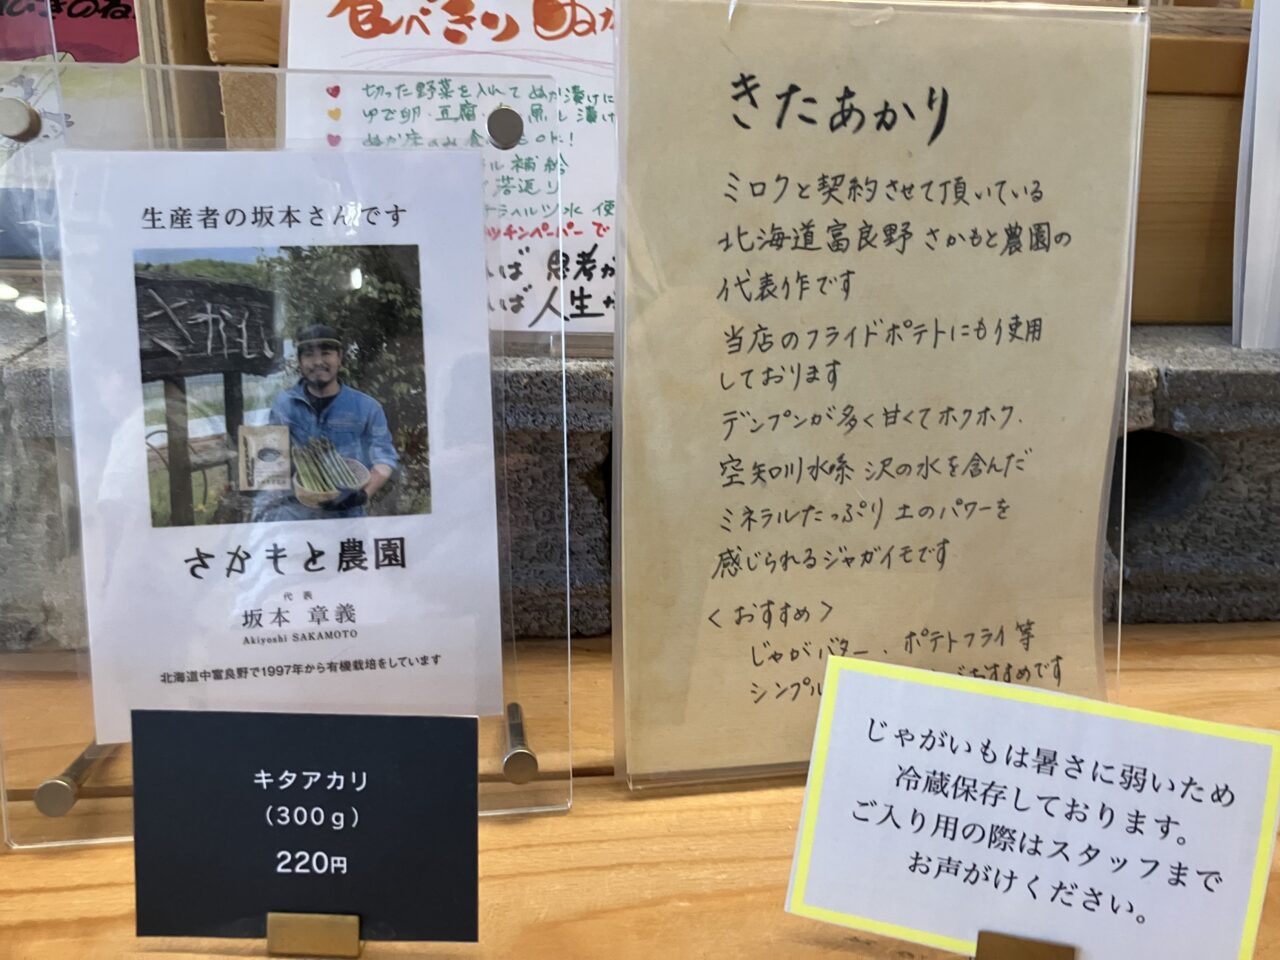 食べきり
切った野菜を入れて
ゆで卵、豆腐、
補給
若返り
ッチンペーパーで
思考が
人生が
生産者の坂本さんです
さかもと農園
代表
坂本 章義
Akiyoshi SAKAMOTO
北海道中富良野で1997年から有機栽培をしています
キタアカリ
(300g)
220円
きたあかり
ミロクと契約させて頂いている
北海道富良野 さかもと農園の
代表作です
当店のフライドポテトにも使用
しております
デンプンが多く甘くてホクホク.
空知川水系 沢の水を含んだ
ミネラルたっぷり土のパワーを
感じられるジャガイモです
<おすすめ>
じゃがバター、ポテトフライ等
シンプル おすすめです
じゃがいもは暑さに弱いため
冷蔵保存しております。
ご入り用の際はスタッフまで
お声がけください。